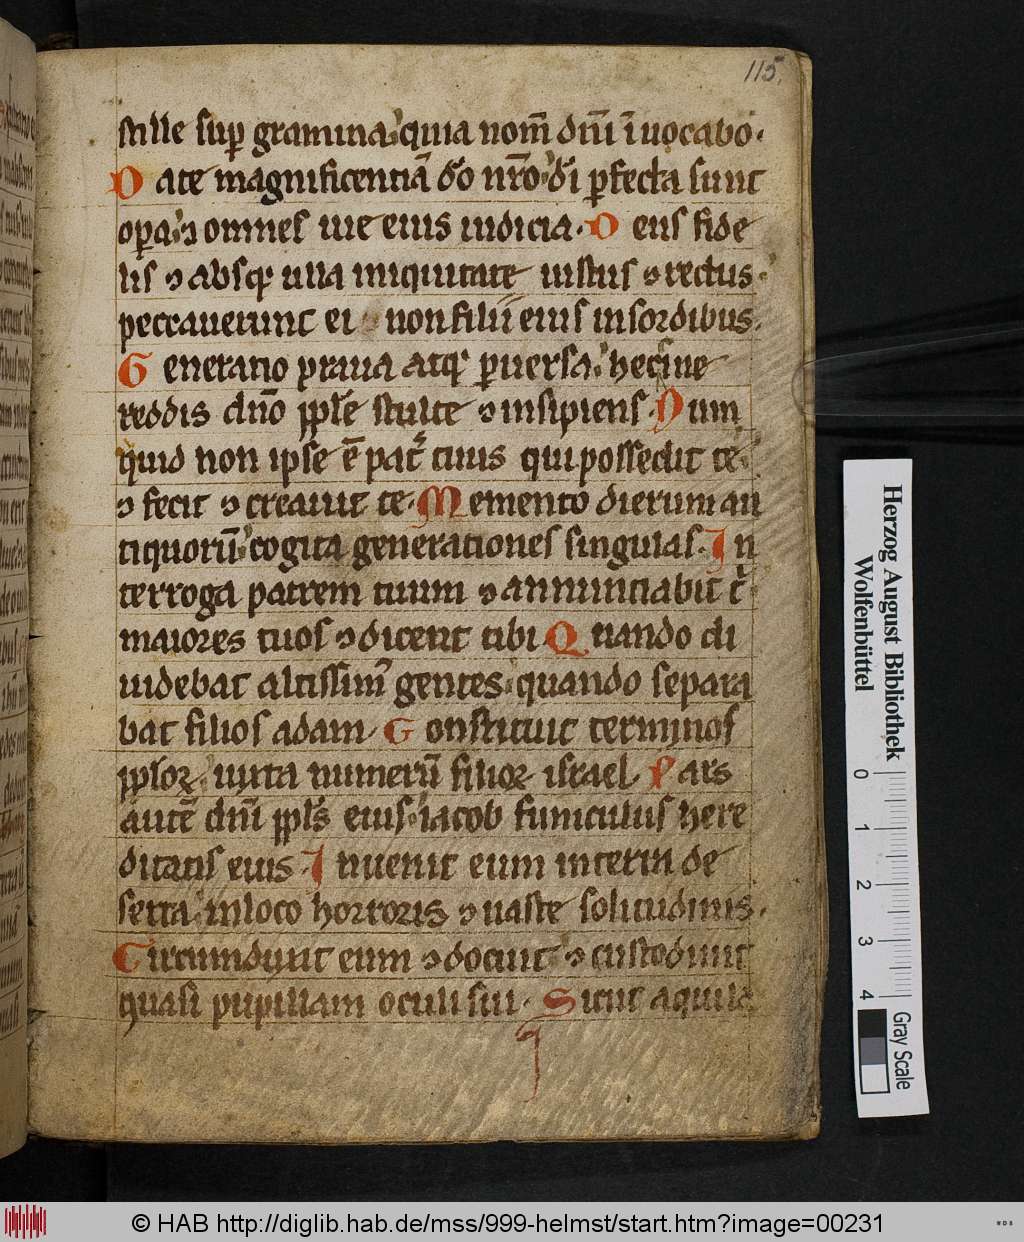 115.
stille sup̱ gramina quia nom̄ dn̄i ī uocabo.
Date magnificentiā do̅ nr̄o di̅ p̱fecta sunt
op̱a ⁊ omnes uie eius iudicia. Deus fide
lis ⁊ absq̢ ulla iniquitate iustus ⁊ rectus
peccauerunt ei non filii eius in sordibus.
Generatio praua atq̢ p̱uersa heccine
reddis dn̄o pp̄le stulte ⁊ insipiens. Num
quid non ipse ē pat̄ tuus qui possedit te
⁊ fecit ⁊ creauit te. Memento dierum an
tiquorū cogita generationes singulas. In
terroga patrem tuum ⁊ annunciabit t̄
maiores tuos ⁊ dicent tibi Quando di
uidebat altissim᷒ gentes quando separa
bat filios adam. Constituit terminos
pp̄loꝝ iuxta numerū filioꝝ israel. Pars
autē dn̄i pp̄ls eius iacob funiculus here
ditatis eius. Inuenit eum in terra de
serta in loco horroris ⁊ uaste solitudinis.
Circumduxit eum ⁊ docuit ⁊ custodiuit
quasi pupillam oculi sui. Sicut aquila
Herzog August Bibliothek
Wolfenbüttel
0 1 2 3 4
Gray Scale
© HAB http://diglib.hab.de/mss/999-helmst/start.htm?image=00231